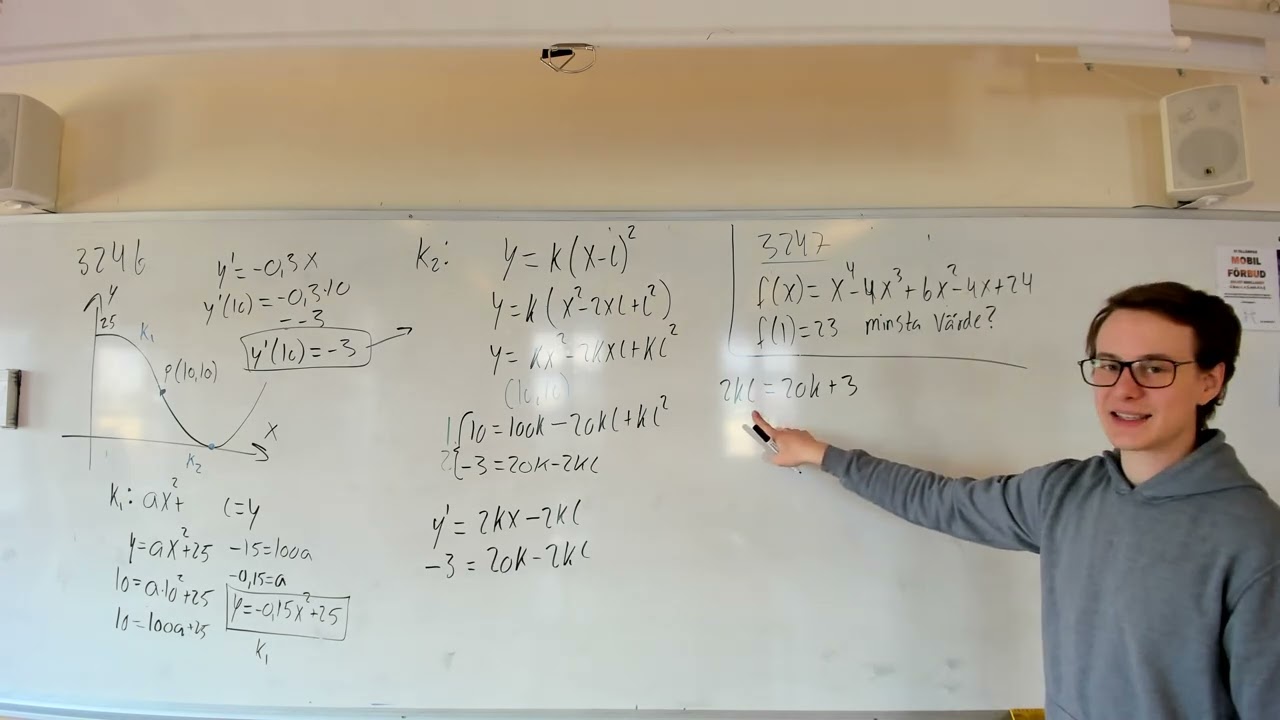 3246
y' = -0,3x
y'(10) = -0,3·10
= -3
y'(10) = -3
y
25
k₁
P(10,10)
x
k₂
k₁: ax²+
c=y
y=ax²+25
-15=100a
10=a·10²+25
-0,15=a
10=100a+25
y=-0,15x²+25
k₁
k₂:
y = k(x-l)²
y = k(x²-2xl+l²)
y = kx²-2kxl+kl²
(10,10)
1 10 = 100k - 20kl + kl²
2 -3 = 20k - 2kl
y' = 2kx - 2kl
-3 = 20k - 2kl
3247
f(x) = x⁴-4x³+6x²-4x+24
f(1)=23 minsta värde?
2kl = 20k + 3
MOBIL
FÖRBUD